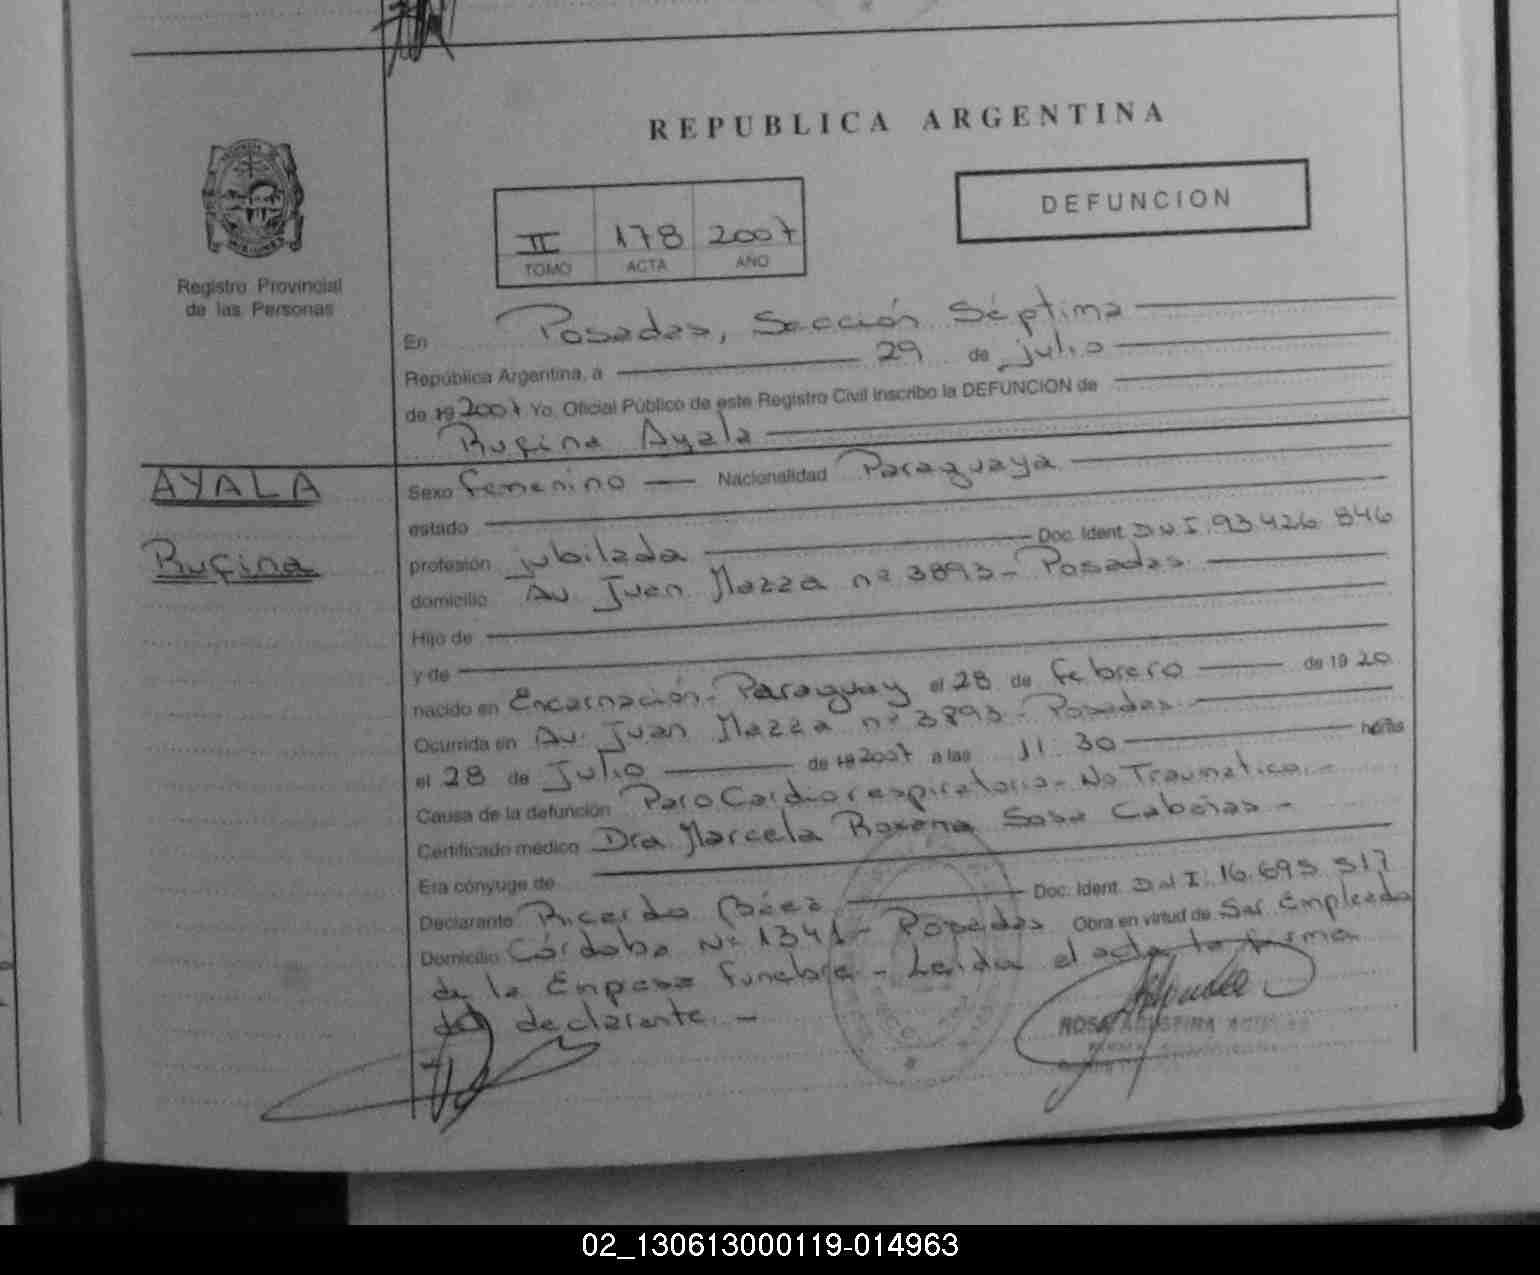 REPUBLICA ARGENTINA
DEFUNCION
II 178 2007
TOMO ACTA AÑO
Registro Provincial
de las Personas
En Posadas, Sección Séptima
República Argentina, a 29 de julio
de 19 2007 Yo, Oficial Público de este Registro Civil inscribo la DEFUNCION de
Rufina Ayala
AYALA
Rufina
Sexo femenino Nacionalidad Paraguaya
estado
profesión jubilada Doc. Ident. D.N.I. 93.426.846
domicilio Av. Juan Mazza nº 3893- Posadas
Hijo de
y de
nacido en Encarnación- Paraguay el 28 de febrero de 19 20
Ocurrida en Av. Juan Mazza nº 3893- Posadas
el 28 de Julio de 19 2007 a las 11:30 horas
Causa de la defunción Paro Cardiorespiratorio- No Traumatico.-
Certificado médico Dra Marcela Roxana Sosa Cabañas-
Era cónyuge de
Declarante Ricardo Báez Doc. Ident. D.N.I. 16.695.517
Domicilio Córdoba Nº 1341- Posadas Obra en virtud de Ser Empleado
de la Empesa Funebre.- Leida el acta la firma
del declarante.-
ROSA AGUSTINA
02_130613000119-014963